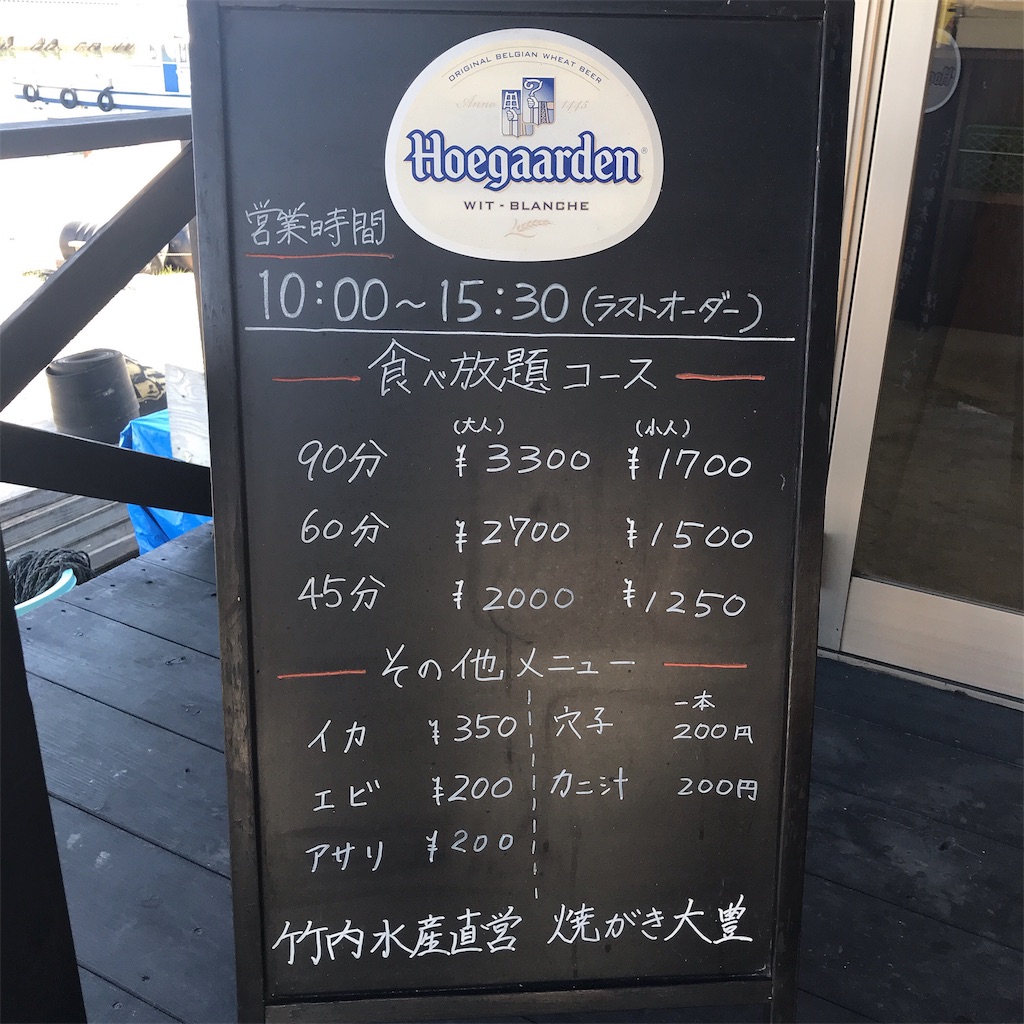 ORIGINAL BELGIAN WHEAT BEER
Anno 1445
Hoegaarden®
WIT - BLANCHE
営業時間
10:00〜15:30(ラストオーダー)
食べ放題コース
(大人) (小人)
90分 ¥3300 ¥1700
60分 ¥2700 ¥1500
45分 ¥2000 ¥1250
その他メニュー
イカ ¥350 穴子 一本 200円
エビ ¥200 カニ汁 200円
アサリ ¥200
竹内水産直営 焼がき大豊